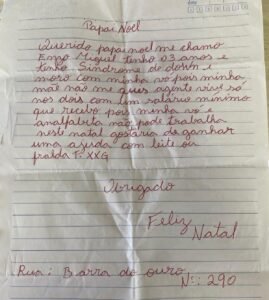 Papai Noel
Querido papai noel me chamo
Enzo Miguel tenho 03 anos e
tenho Síndrome de down e
moro com minha vó pois minha
mãe não me ques agente vive só
nos dois com um salário minimo
que recebo pois minha vó e
analfabita não pode trabalha
neste natal gostaria de ganhar
uma ajuda com leite ou
fralda T. XXG
Obrigado
Feliz
Natal
Rua: Barra do ouro
Nº: 290